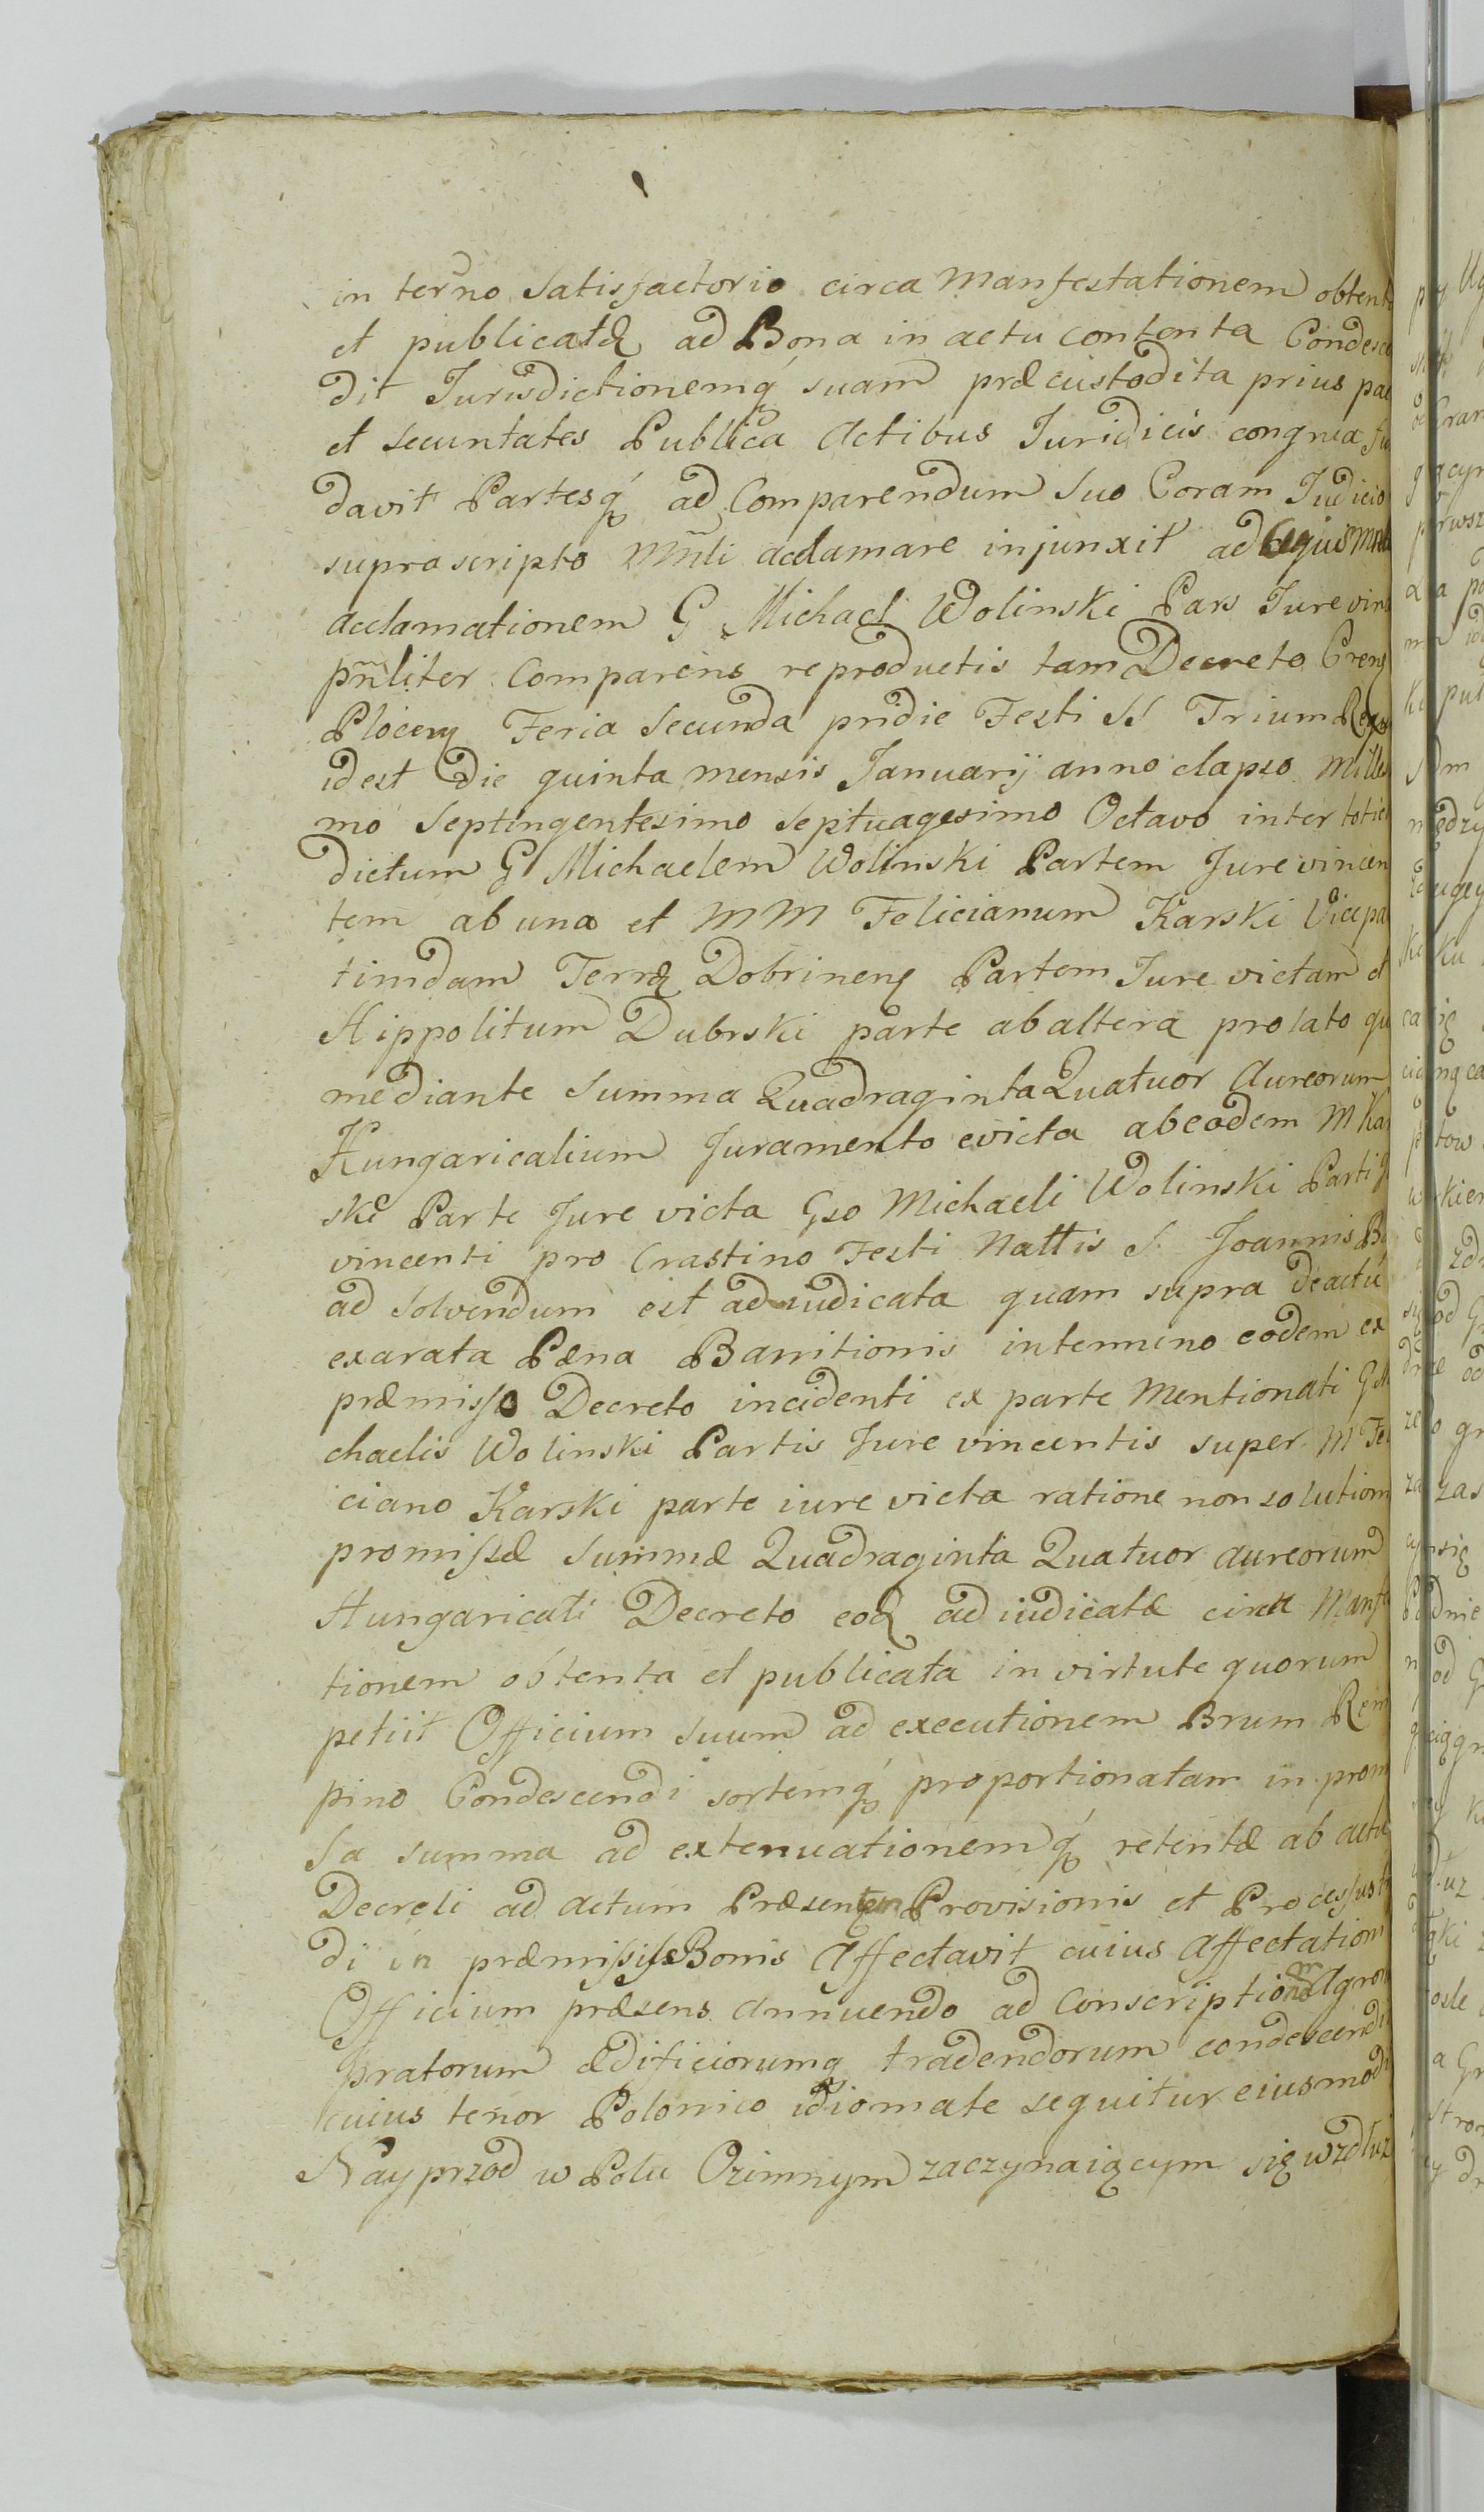 in termno Satisfactorio circa Manfestationem obtent
et publicatæ ad Bona in actu contenta Condesce
dit Jurisdictionemq suam præcustodita prius pac
et securitates Publica Actibus Juridicis congrua fu
davit Partesq ad Comparendum Suo Coram Judicio
suprascripto Mnli acclamare injunxit ad cujus Mnle
acclamationem G Michael Wolinski Pars Jure vinc
pnliter Comparens reproductis tam Decreto Cren
Plocen Feria Secunda pridie Festi SS Trium Reg
idest Die quinta mensis Januarij anno elapso Milles
mo Septingentesimo Septuagesimo Octavo inter toties
dictum G Michaelem Wolinski Partem Jure vincen
tem ab una et MM Felicianum Karski Vicepa
timdam Terræ Dobrinen Partem Jure victam et
Hippolitum Dubrski parte ab altera prolato qu
mediante Summa Quadraginta Quatuor Aureorum
Hungaricalium Juramento evicta ab eodem M Kar
ski Parte Jure victa Gso Michaeli Wolinski Parti J
vincenti pro Crastino Festi Nattis S. Joannis B
ad Solvendum est adiudicata quam supra de actu
exarata Pæna Bannitionis in termino eodem ex
præmisso Decreto incidenti ex parte Mentionati G M
chaelis Wolinski Partis Jure vincentis super M Fel
ciano Karski parte iure victa ratione non solutiom
promissæ Summæ Quadraginta Quatuor aureorum
Hungaricali Decreto eod adiudicatæ circa Manfe
tionem obtenta et publicata in virtute quorum
petiit Officium suum ad executionem Brum Rem
pino Condescendi sortemq proportionatam in prom
sa summa ad extenuationemq retentæ ab actu
Decreti ad actum Præsentem Provisionis et Processus
di in præmissis Bonis Affectavit cuius Affectation
Officium præsens Annuendo ad Conscriptionem Agror
pratorum ædificiorumq tradendorum condescendi
cuius tenor Polonico idiomate sequitur eiusmodi
Nayprzod w Polu Ozimnym zaczynaiącym się wzdłuz